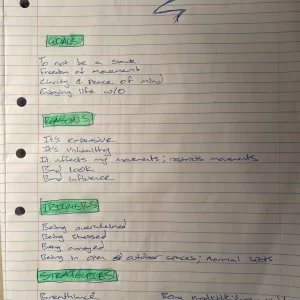 GOALS
To not be a
Freedom of movement
Clarity & Peace of mind
Enjoying life w/o
REASONS
It's expensive
It's unhealthy
It affects my movements; restricts movements
Bad look
Bad influence
TRIGGERS
Being overwhelmed
Being stressed
Being annoyed
Being in open outdoor spaces; normal
STRATEGIES
Being